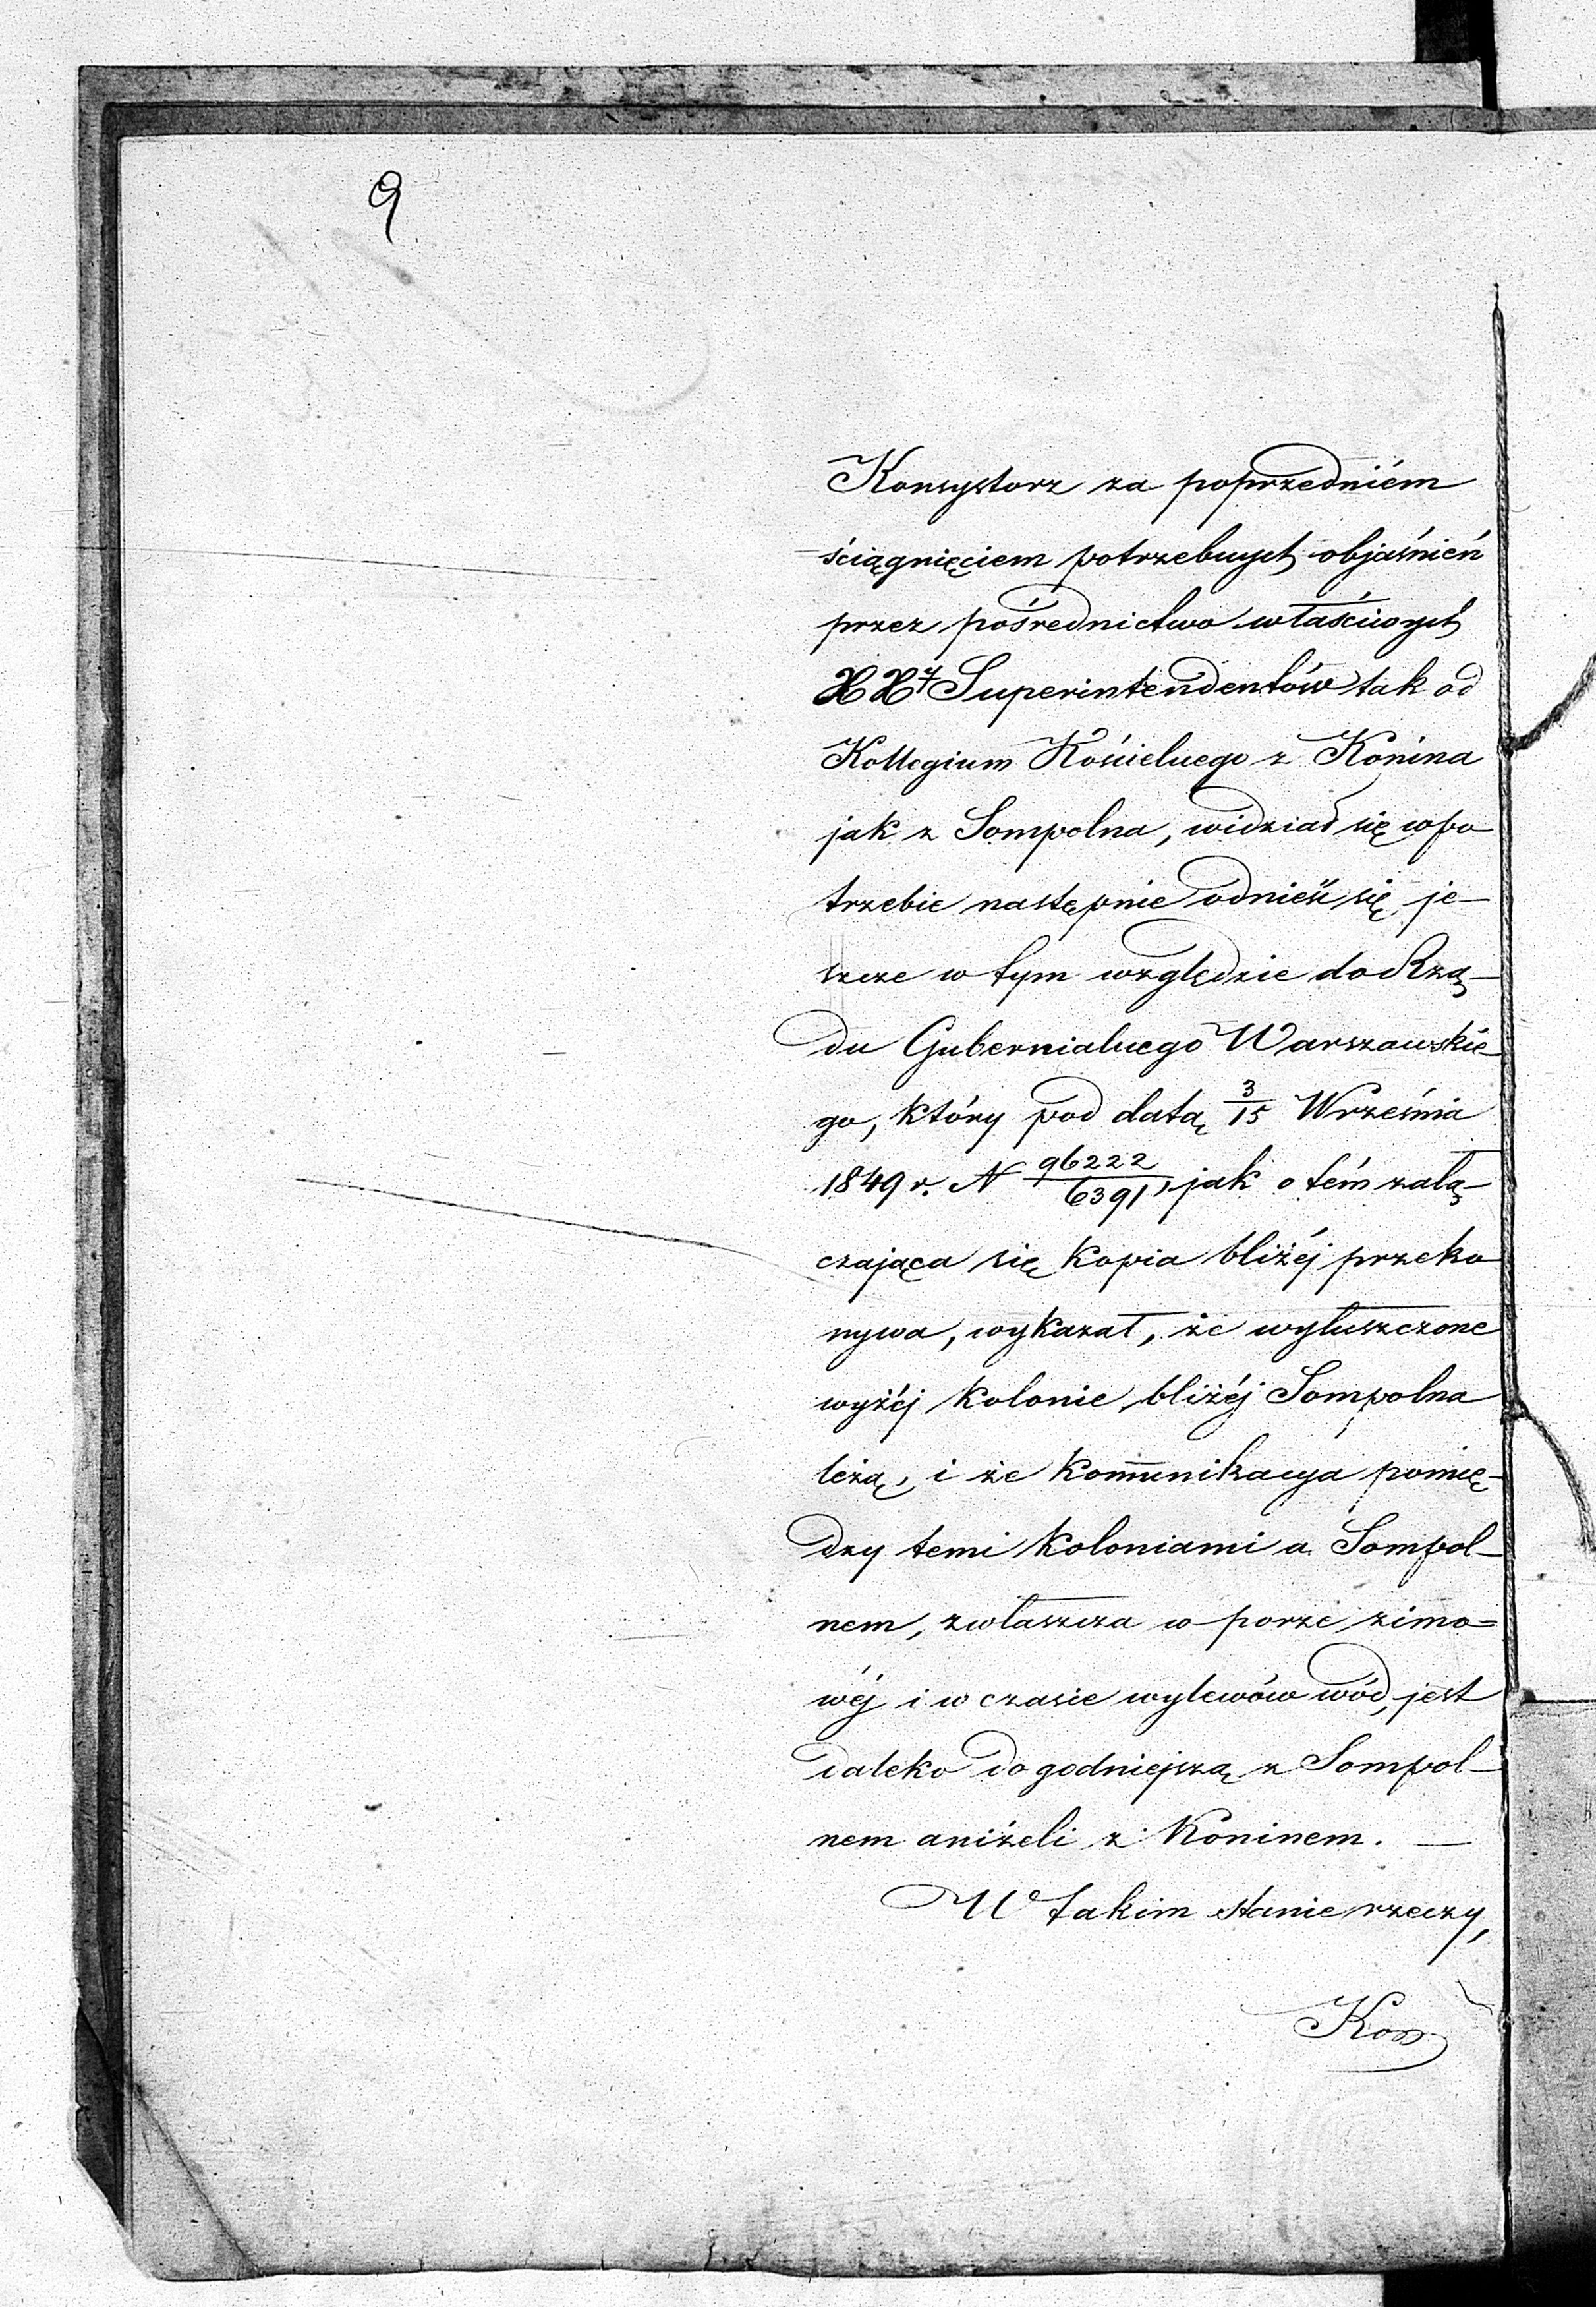 9
Konsystorz za poprzedniém
ściągnięciem potrzebnych objaśnień
przez pośrednictwo właściwych
XX Superintendentów tak od
Kollegium Kościelnego z Konina
jak z Sompolna, widział się w po-
trzebie następnie odnieść się je-
szcze w tym względzie do Rzą-
du Gubernialnego Warszawskie-
go, który pod datą 3/15 Września
1849 r. N 96222/6391, jak o tém załą-
czająca się kopia bliżéj przeko-
nywa, wykazał, że wyłuszczone
wyżéj kolonie bliżéj Sompolna
leżą, i że kom̄unikacya pomię-
dzy temi koloniami a Sompol-
nem, zwłaszcza w porze zimo=
wéj i w czasie wylewów wód, jest
daleko dogodniejszą z Sompol-
nem aniżeli z Koninem. —
W takim stanie rzeczy,
Kon